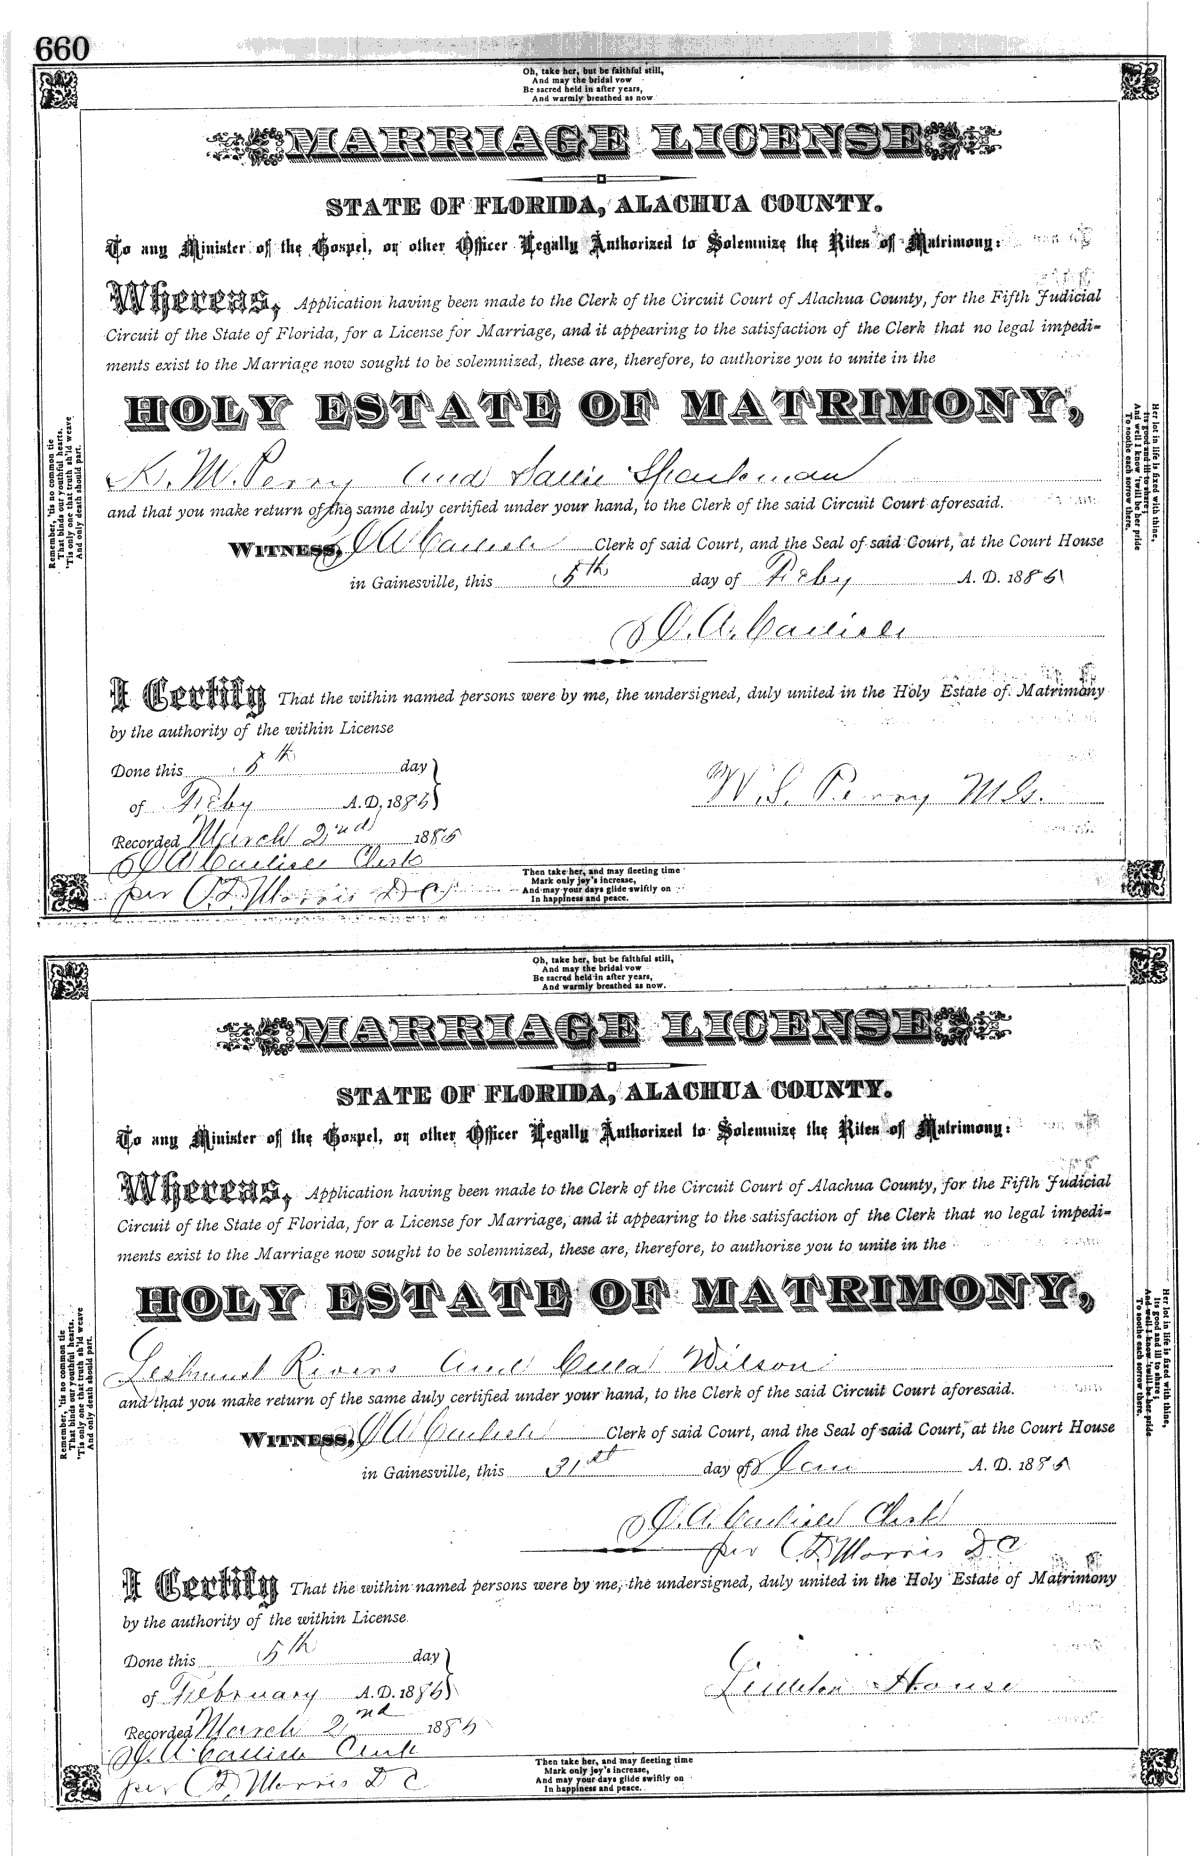 660
Oh, take her, but be faithful still,
And may the bridal vow
Be sacred held in after years,
And warmly breathed as now
MARRIAGE LICENSE
STATE OF FLORIDA, ALACHUA COUNTY.
To any Minister of the Gospel, or other Officer Legally Authorized to Solemnize the Rites of Matrimony:
Whereas, Application having been made to the Clerk of the Circuit Court of Alachua County, for the Fifth Judicial
Circuit of the State of Florida, for a License for Marriage, and it appearing to the satisfaction of the Clerk that no legal impedi-
ments exist to the Marriage now sought to be solemnized, these are, therefore, to authorize you to unite in the
HOLY ESTATE OF MATRIMONY,
K. M. Perry and Sallie Sparkman
and that you make return of the same duly certified under your hand, to the Clerk of the said Circuit Court aforesaid.
WITNESS, J A Carlisle Clerk of said Court, and the Seal of said Court, at the Court House
in Gainesville, this 5th day of Feby A. D. 1885
J. A. Carlisle
I Certify That the within named persons were by me, the undersigned, duly united in the Holy Estate of Matrimony
by the authority of the within License
Done this 5th day
of Feby A.D. 1885
W. S. Perry M G.
Recorded March 2nd 1885
J A Carlisle Clerk
per C. D. Morris D C
Then take her, and may fleeting time
Mark only joy's increase,
And may your days glide swiftly on
In happiness and peace.
Remember, 'tis no common tie
That binds our youthful hearts.
'Tis only one that truth sh'ld weave
And only death should part.
Her lot in life is fixed with thine,
Its good and ill to share;
And well I know 'twill be her pride
To soothe each sorrow there.
Oh, take her, but be faithful still,
And may the bridal vow
Be sacred held in after years,
And warmly breathed as now.
MARRIAGE LICENSE
STATE OF FLORIDA, ALACHUA COUNTY.
To any Minister of the Gospel, or other Officer Legally Authorized to Solemnize the Rites of Matrimony:
Whereas, Application having been made to the Clerk of the Circuit Court of Alachua County, for the Fifth Judicial
Circuit of the State of Florida, for a License for Marriage, and it appearing to the satisfaction of the Clerk that no legal impedi-
ments exist to the Marriage now sought to be solemnized, these are, therefore, to authorize you to unite in the
HOLY ESTATE OF MATRIMONY,
Rivers and Wilson
and that you make return of the same duly certified under your hand, to the Clerk of the said Circuit Court aforesaid.
WITNESS, J A Carlisle Clerk of said Court, and the Seal of said Court, at the Court House
in Gainesville, this 31st day of Jan A. D. 1885
J. A. Carlisle Clerk
per C. D. Morris D C
I Certify That the within named persons were by me, the undersigned, duly united in the Holy Estate of Matrimony
by the authority of the within License
Done this 5th day
of February A.D. 1885
House
Recorded March 2nd 1885
J. A. Carlisle Clerk
per C D Morris D C
Then take her, and may fleeting time
Mark only joy's increase,
And may your days glide swiftly on
In happiness and peace.
Remember, 'tis no common tie
That binds our youthful hearts.
'Tis only one that truth sh'ld weave
And only death should part.
Her lot in life is fixed with thine,
Its good and ill to share;
And well I know 'twill be her pride
To soothe each sorrow there.